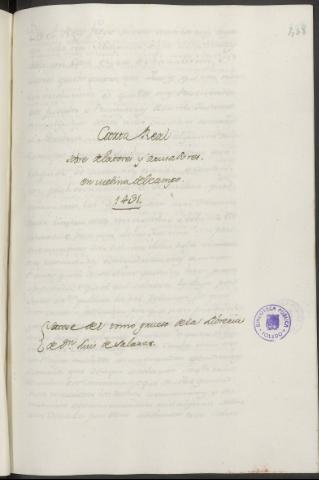 238
Carta Real
sobre delatores y acusadores.
en medina del campo.
1431.
Sacose del tomo grueso de la Libreria
de Dn. Luis de Salazar.
BIBLIOTECA PUBLICA
TOLEDO